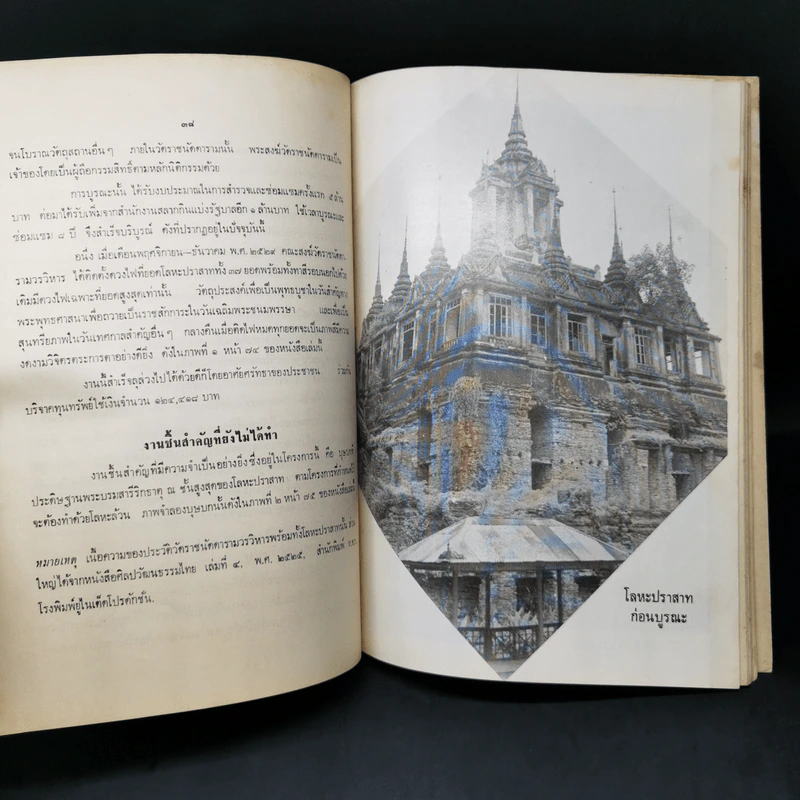 ๓๘
จนโบราณวัตถุสถานอื่นๆ ภายในวัดราชนัดดารามนั้น พระสงฆ์วัดราชนัดดารามเป็น
เจ้าของโดยเป็นผู้ถือกรรมสิทธิ์ตามหลักนิติกรรมด้วย
การบูรณะนั้น ได้รับงบประมาณในการสำรวจและซ่อมแซมครั้งแรก ๕ ล้าน
บาท ต่อมาได้รับเพิ่มจากสำนักงานสลากกินแบ่งรัฐบาลอีก ๑ ล้านบาท ใช้เวลาบูรณะและ
ซ่อมแซม ๘ ปี จึงสำเร็จบริบูรณ์ ดังที่ปรากฏอยู่ในปัจจุบันนี้
อนึ่ง เมื่อเดือนพฤศจิกายน—ธันวาคม พ.ศ. ๒๕๒๙ คณะสงฆ์วัดราชนัดดา-
รามวรวิหาร ได้ติดตั้งดวงไฟที่ยอดโลหะปราสาททั้ง ๓๗ ยอดพร้อมทั้งทาสีรอบนอกไปด้วย
เดิมมีดวงไฟเฉพาะที่ยอดสูงสุดเท่านั้น วัตถุประสงค์เพื่อเป็นพุทธบูชาในวันสำคัญทาง
พระพุทธศาสนาเพื่อถวายเป็นราชสักการะในวันเฉลิมพระชนมพรรษา และเพื่อเป็น
สุนทรียภาพในวันเทศกาลสำคัญอื่นๆ กลางคืนเมื่อติดไฟหมดทุกยอดจะเป็นภาพที่มีความ
งดงามวิจิตรตระการตาอย่างดียิ่ง ดังในภาพที่ ๑ หน้า ๗๔ ของหนังสือเล่มนี้
งานนี้สำเร็จลุล่วงไปได้ด้วยดีก็โดยอาศัยศรัทธาของประชาชน ร่วมกัน
บริจาคทุนทรัพย์ใช้เงินจำนวน ๑๒๔,๔๑๘ บาท
งานชิ้นสำคัญที่ยังไม่ได้ทำ
งานชิ้นสำคัญที่มีความจำเป็นอย่างยิ่งซึ่งอยู่ในโครงการนี้ คือ บุษบกที่
ประดิษฐานพระบรมสารีริกธาตุ ณ ชั้นสูงสุดของโลหะปราสาท ตามโครงการที่กำหนดไว้
จะต้องทำด้วยโลหะล้วน ภาพจำลองบุษบกนั้นดังในภาพที่ ๒ หน้า ๗๕ ของหนังสือเล่มนี้
หมายเหตุ เนื้อความของประวัติวัดราชนัดดารามวรวิหารพร้อมทั้งโลหะปราสาทนั้น ส่วน
ใหญ่ได้จากหนังสือศิลปวัฒนธรรมไทย เล่มที่ ๔, พ.ศ. ๒๕๒๕, สำนักพิมพ์
โรงพิมพ์ยูไนเต็ดโปรดักชั่น.
โลหะปราสาท
ก่อนบูรณะ